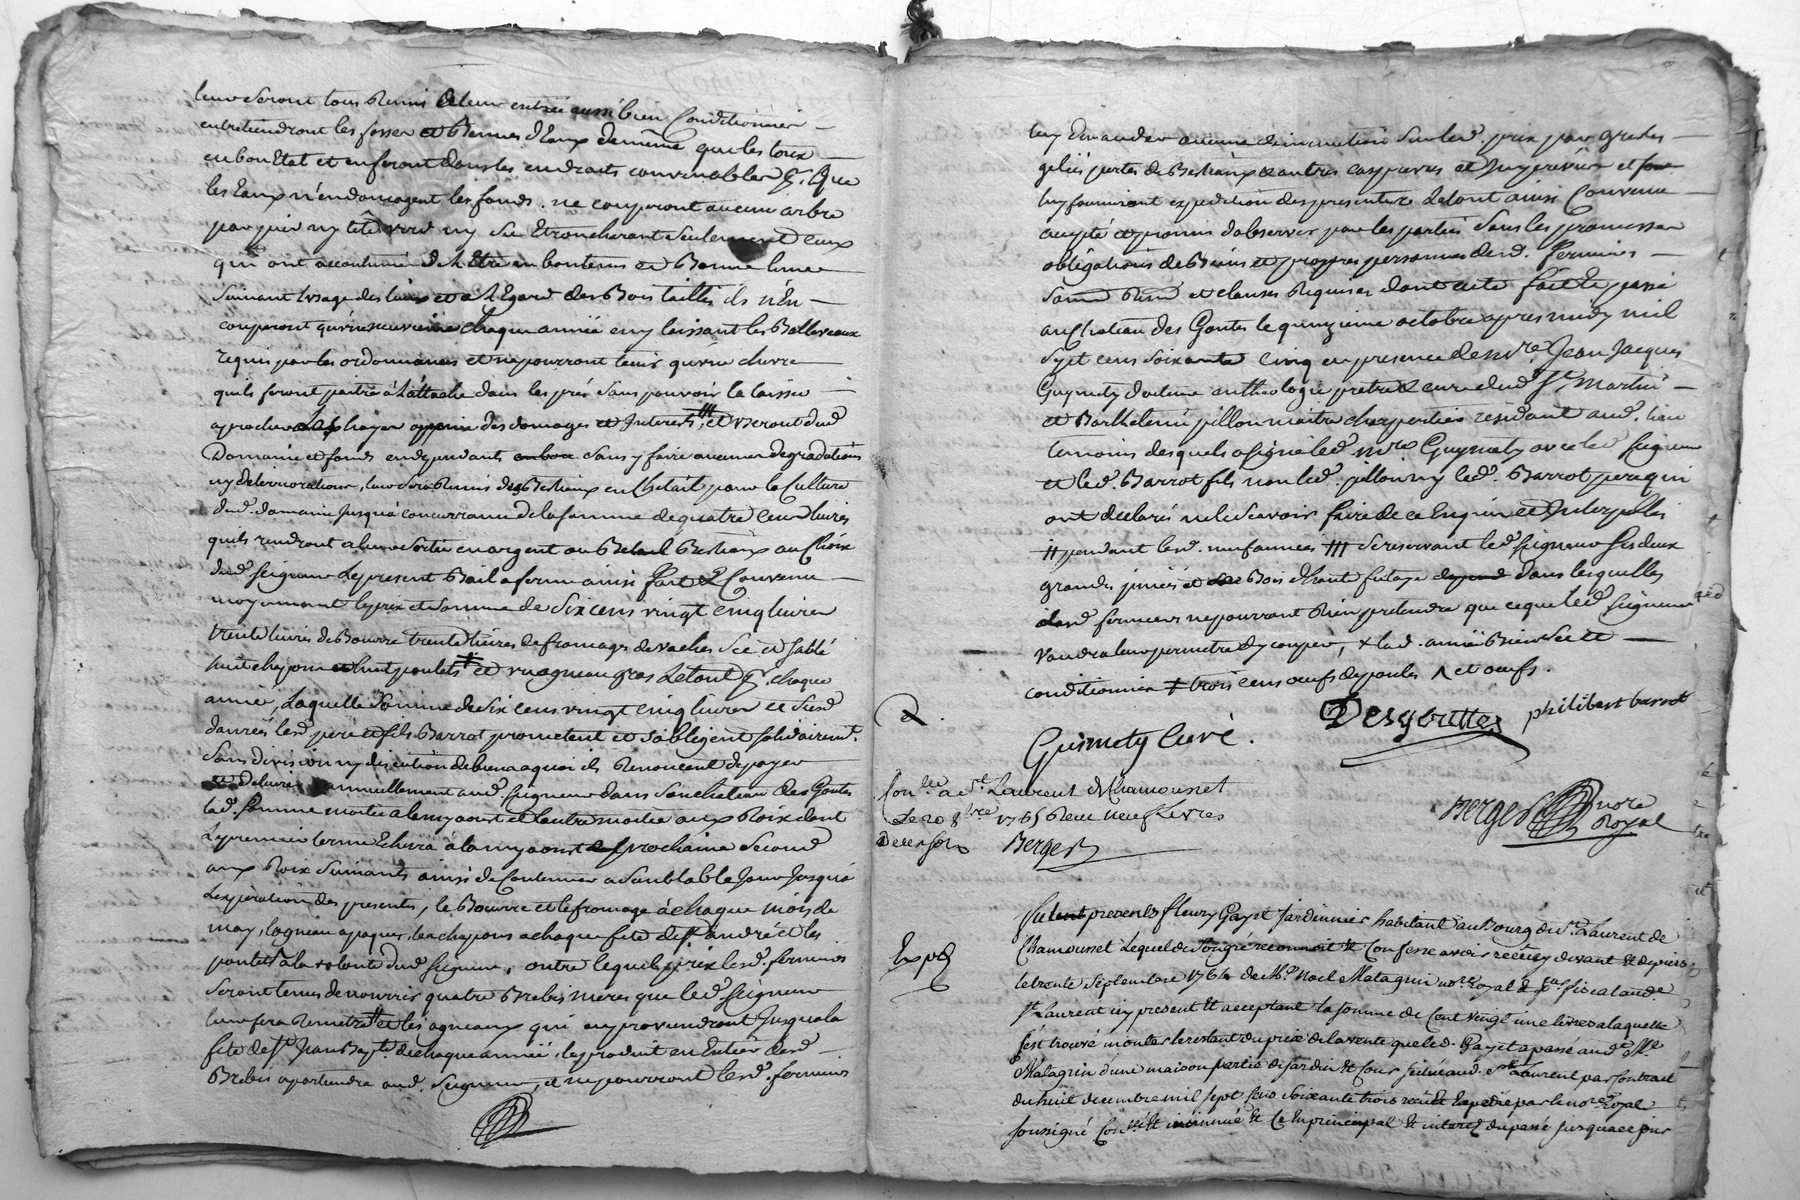 leur seront tous Remis a leur entrée aussi bien Conditionnés
entretiendront les fossés et Bernes d'Eaux de même que les toux
en bon Etat et en feront dans les endroits convenables pr. que
les Eaux n'endomagent les fonds. ne couperont aucun arbre
par pied ny tête verd ny sec Etroncheront seulement ceux
qui ont accoutumé de l'Etre en bon tems et Bonne lune
Suivant lusage des lieux et a l'Egard des Bois taillis ils n'en
couperont qu'une chaque année en y laissant les Balliveaux
requis par les ordonnances et ne pourront tenir qu'une chevre
quils feront paitre à L'attache dans les prés sans pouvoir la laisser
aprocher des hayes a peine des domages et Interests, et useront dud
Domaine et fonds en dependants sans y faire aucunes degradations
ny deteriorations, leur sera Remis des Bestiaux en Chetail pour la Culture
dud. domaine Jusqu'à concurrance de la somme de quatre Cent livres
quils rendront a leur Sortie en argent ou Bestiaux au Choix
dud. seigneur Le present Bail a ferme ainsi fait & Convenu
moyennant le prix et somme de Six cens vingt cinq livres
trente livres de Beurre trente livres de fromage de vaches Séc et sallé
huit chapons et huit poulets ‡ et un agneau gras Le tout pr. chaque
année, Laquelle Somme de Six cens vingt cinq livres et Susd
danrées lesd. pere et fils Barrot promettent et s'obligent solidairemt.
Sans division ny discution de biens a quoi ils Renoncent de payer
et Delivrer annuellement aud. seigneur dans son chateau des Gouttes
lad. somme moitié a la my aoust et l'autre moitié aux Roix dont
Le premier terme Echerra à la my aoust prochaine Second
aux Roix Suivants ainsi de Continuer a Semblable Jour Jusqu'à
L'expiration des presentes, le Beurre et le fromage à chaque mois de
may, lagneau a paques, les chapons a chaque fete de st. andré et les
poulets à la volonté dud seigneur, outre lequel prix lesd. fermiers
seront tenus de nourrir quatre Brebis mères que led. seigneur
leur fera Remetre # et les agneaux qui en proviendront Jusqu'a la
fête de st. Jean Bapt. de chaque année, le produit en Entier desd.
Brebis apartiendra aud. Seigneur, et ne pourront lesd. fermiers
luy demander aucune diminution sur led. prix par greles
gelées pertes de Bestiaux & autres cas prevus et Imprevûs et
luy fourniront expedition des presentes Le tout ainsi Convenu
accepté et promis d'observer par les parties sous les promesses
obligations de Biens et propres personnes desd. fermiers
et clauses Requises dont acte fait et passé
au Chateau des Gouttes le quinzieme octobre apres midy mil
sept cens soixante cinq en presence de mre. Jean Jacques
Guymety docteur en theologie pretre & curé dud st. Martin
et Barthelemi pillon maitre charpentier residant aud. lieu
temoins desquels a signé led. mre Guymety avec led seigneur
et led. Barrot fils non led. pillon ny led. Barrot pere qui
ont declaré ne le Scavoir faire de ce Enquis et Interpellés
# pendant lesd. neuf années /// se reservant led seigneur ses deux
grandes et Bois d'haute futaye dans lesquelles
lesd fermiers ne pourront Rien pretendre que ce que led Seigneur
voudra leur permetre d'y couper, + lad. année Bien Sec et
conditionnée ‡ trois cens oeufs de poules ^ et oeufs.
Desgouttes philibert barrot
Guimety Curé.
Conlé a St. Laurent de Chamousset
Le 20 8bre 1765 Reçu neuf Livres
Berger
Berger nore Royal
Expd
fut present Sr fleury Gayet Jardinnier habitant au Bourg de St. Laurent de
Chamousset Lequel de Son gré reconnoit & Confesse avoir receu cy devant & depuis
le trente Septembre 1764 de Me. Noel Matagrin nore Royal & pr. fiscal aud.
St Laurent icy present & acceptant la somme de Cent vingt une livres a laquelle
s'est trouvé monter le restant du prix de la vente que led. Gayet a passé aud. Me
Matagrin d'une maison partie de jardin & Cour scitué aud. St Laurent par Contract
du huit decembre mil sept cens soixante trois receu & Expedié par le nore Royal
soussigné Conlé & insinué & Ce En principal & interez du passé jusqua ce jour